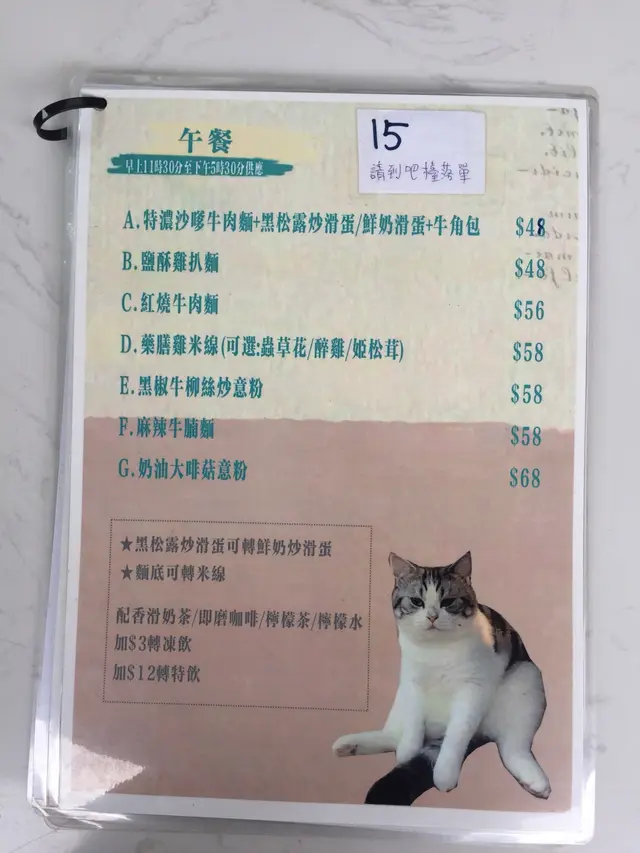 午餐
早上11時30分至下午5時30分供應
15
請到吧檯落單
A.特濃沙嗲牛肉麵+黑松露炒滑蛋/鮮奶滑蛋+牛角包 $48
B.鹽酥雞扒麵 $48
C.紅燒牛肉麵 $56
D.藥膳雞米線(可選:蟲草花/醉雞/姬松茸) $58
E.黑椒牛柳絲炒意粉 $58
F.麻辣牛腩麵 $58
G.奶油大啡菇意粉 $68
★黑松露炒滑蛋可轉鮮奶炒滑蛋
★麵底可轉米線
配香滑奶茶/即磨咖啡/檸檬茶/檸檬水
加$3轉凍飲
加$12轉特飲